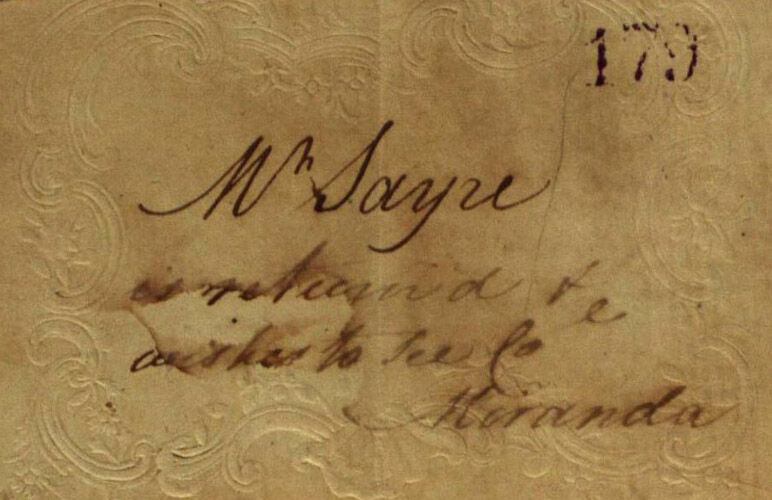 179
Mr Sayre
is returnd & e
wishes to see Co
Miranda